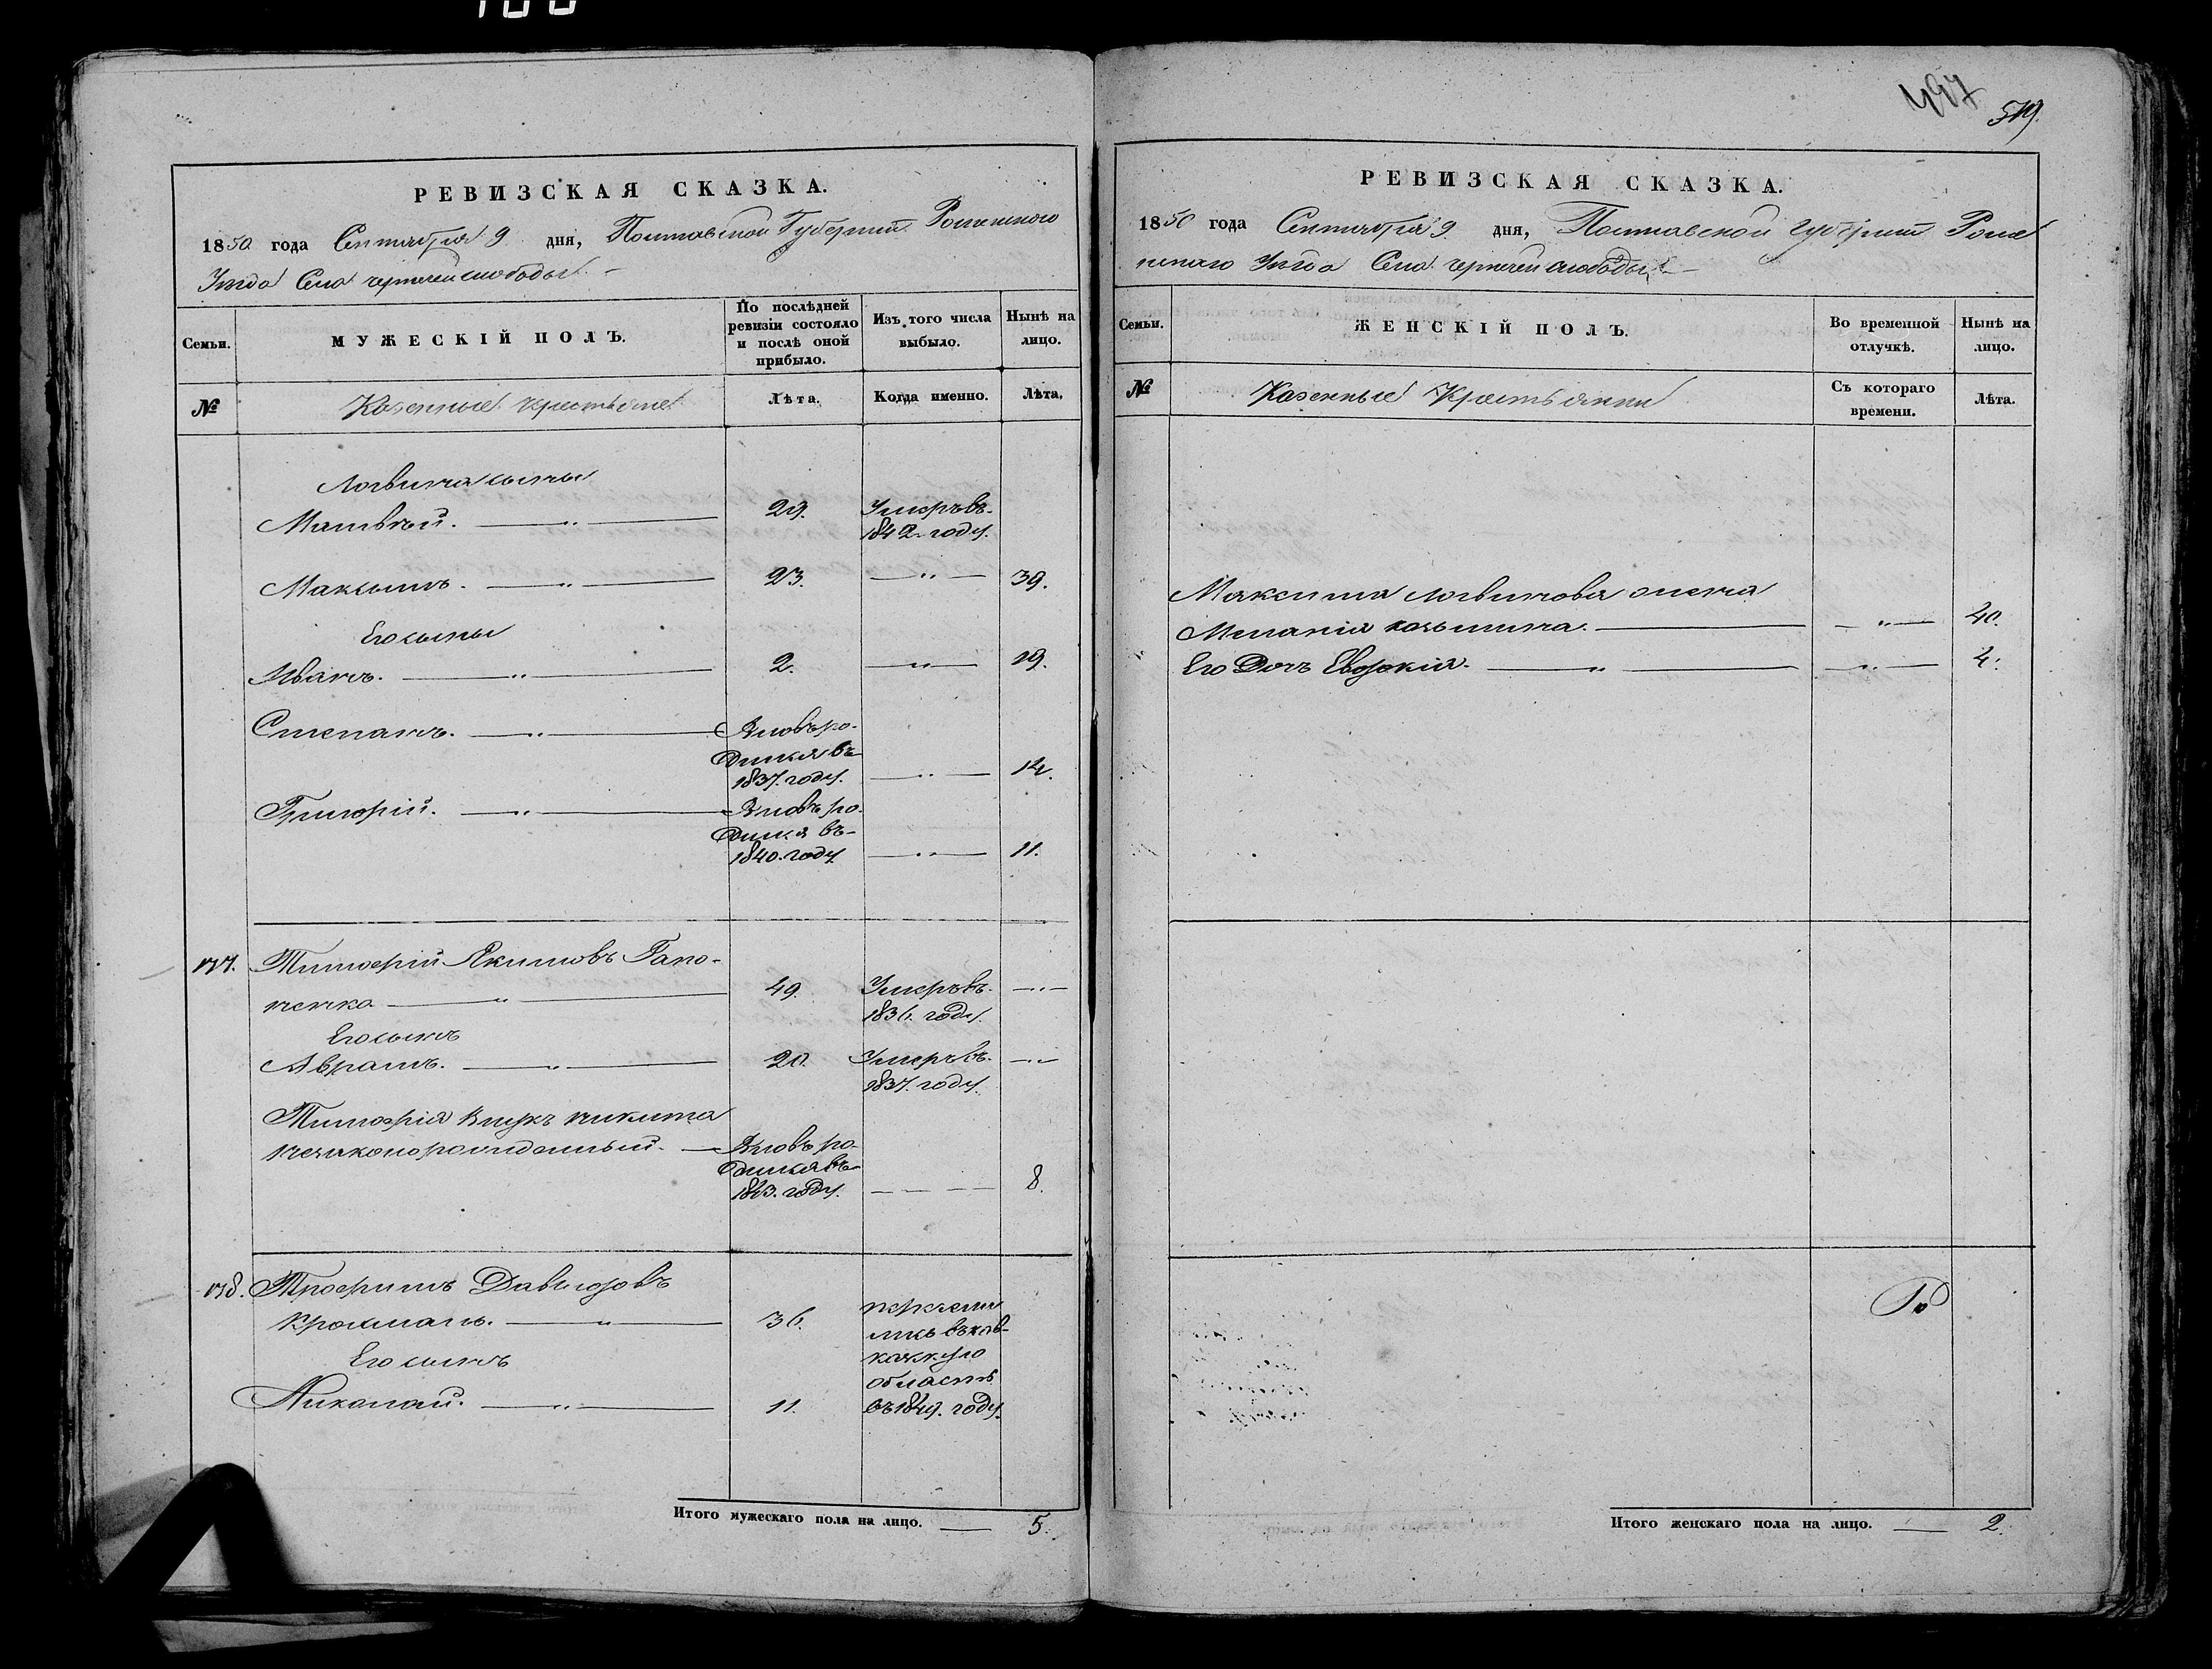 497
519.
РЕВИЗСКАЯ СКАЗКА.
1850 года Сентября 9 дня, Полтавской Губернии Роменского
Уезда Села чернечей слободы
Семьи.
МУЖЕСКІЙ ПОЛЪ.
По послѣдней ревизіи состояло и послѣ оной прибыло.
Изъ того числа выбыло.
Нынѣ на лицо.
№
Казенные крестьяне
Лѣта.
Когда именно.
Лѣта.
Логвина сыны
Матвѣй. 29. Умеръ въ
1842 году.
Максимъ. 23. 39.
Его сыны
Иванъ. 2. 19.
Степанъ. Вновь ро-
дился въ
1837. году. 14.
Григорій. Вновь ро-
дился въ
1840. году 11.
Тимофій Якимовъ Гапо-
ненко 49. Умеръ въ
1836. году.
Его сынъ
Аврамъ. 20. Умеръ въ
1837. году.
Тимофія внукъ никита
незаконорожденный. Вновь ро-
дился въ
1843. году. 8.
Трофимъ Давыдовъ
36. перечеи
ликъ въ кав-
Его сынъ
область
Николай. 11. въ 1849. году.
Итого мужескаго пола на лицо. 5.
РЕВИЗСКАЯ СКАЗКА.
1850 года Сентября 9. дня, Полтавской губерніи Роме
нского Уезда Села чернечей слободы
Семьи.
ЖЕНСКІЙ ПОЛЪ.
Во временной отлучкѣ.
Нынѣ на лицо.
№
Казенные Крестьянки
Съ котораго времени.
Лѣта.
Максима Логвинова жена
Миланія 40.
Его Дочь Евдокія. 4.
Итого женскаго пола на лицо. 2.